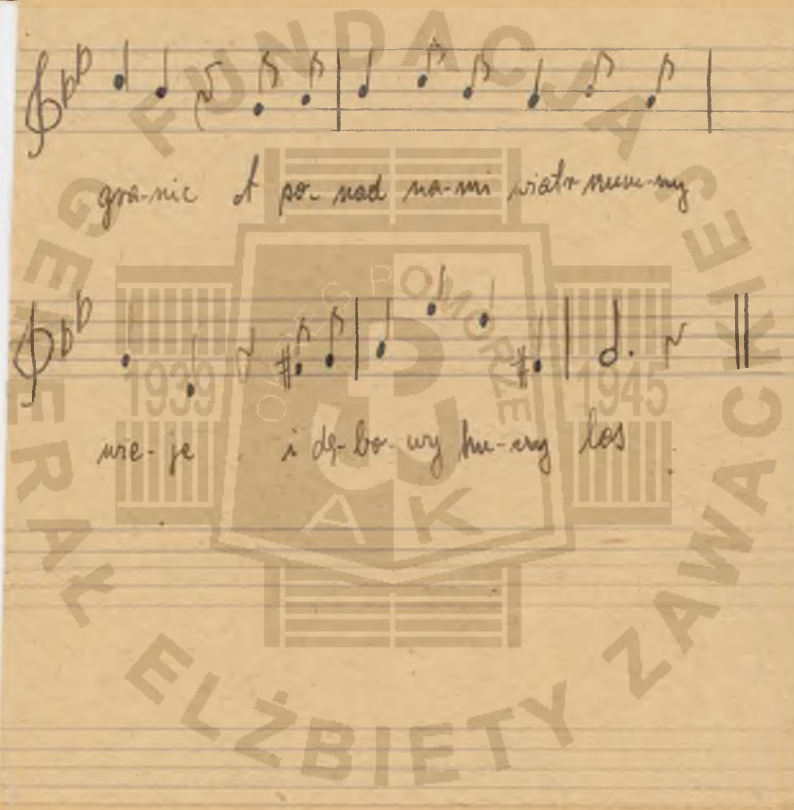 gra-nic A po-nad na-mi wiatr szum-ny
wie-je i dę-bo-wy hu-czy las
FUNDACJA GENERAŁ ELŻBIETY ZAWACKIEJ
OKRĘG POMORZE
1939 1945
AK